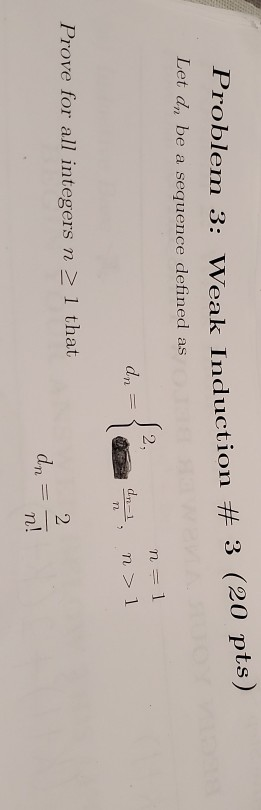 Problem 3: Weak Induction # 3 (20 pts)
Let dₙ be a sequence defined as
dₙ = { 2, n = 1
dₙ₋₁/n, n > 1
Prove for all integers n ≥ 1 that
dₙ = 2/n!